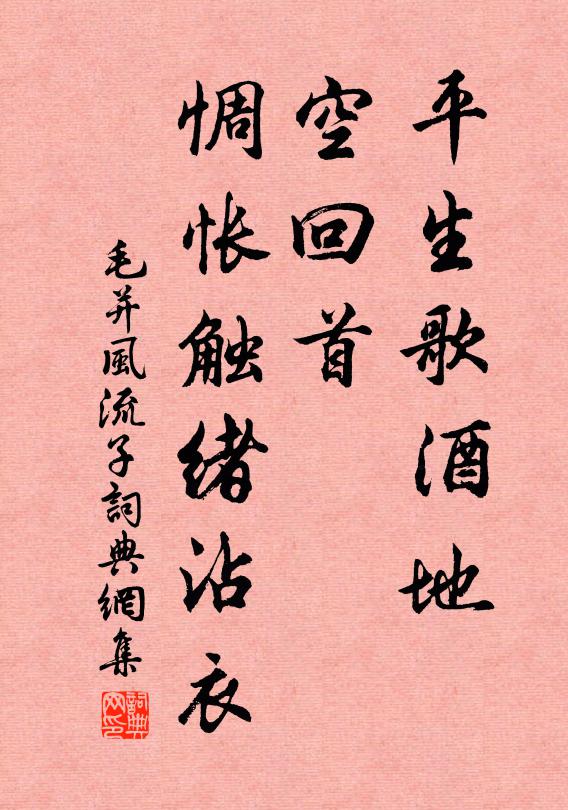 平生歌酒地
空回首
惆怅触绪沾衣
毛并風流子詞典網集
詞典
网印